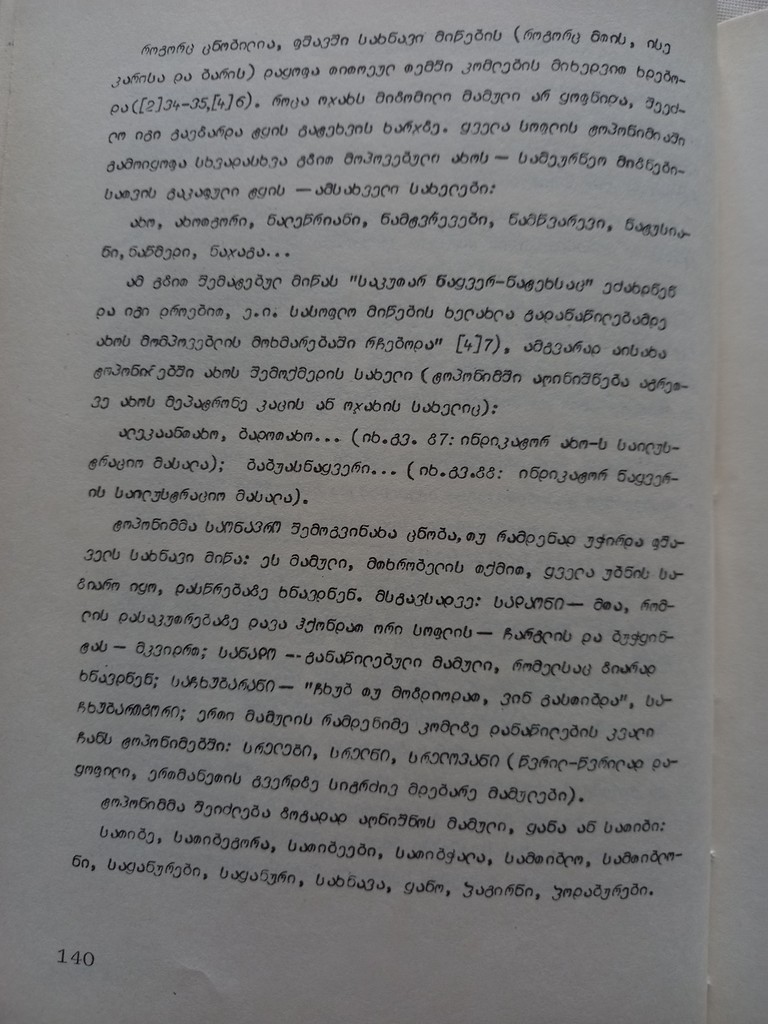 როგორც ცნობილია, ფშავში სახნავი მიწების (როგორც მთის, ისე
კარისა და ბარის) დაყოფა თითოეულ თემში კომლების მიხედვით ხდებო-
და([2]34-35,[4]6). როცა ოჯახს მიზომილი მამული არ ყოფნიდა, შეეძ-
ლო იგი გაეზარდა ტყის გატეხვის ხარჯზე. ყველა სოფლის ტოპონიმიაში
გამოიყოფა სხვადასხვა გზით მოპოვებული ახოს — სამეურნეო მიზნები-
სათვის გაკაფული ტყის — ამსახველი სახელები:
ახო, ახოთგორი, ნალეწრიანი, ნამტვრევები, ნამწვარევი, ნატუსია-
ნი, ნაწმედი, ნაჯაგა...
ამ გზით შემატებულ მიწას "საკუთარ ნაყვერ-ნატეხსაც" ეძახდნენ
და იგი დროებით, ე.ი. სასოფლო მიწების ხელახლა გადანაწილებამდე
ახოს მომპოვებლის მოხმარებაში რჩებოდა" [4]7), ამგვარად აისახა
ტოპონიმებში ახოს შემოქმედის სახელი (ტოპონიმში აღინიშნება აგრეთ-
ვე ახოს მეპატრონე კაცის ან ოჯახის სახელიც):
ალეკაანთახო, ბადოთახო... (იხ.გვ. 87: ინდიკატორ ახო-ს საილუს-
ტრაციო მასალა); ბაბუასნაყვერი... (იხ.გვ.88: ინდიკატორ ნაყვერ-
ის საილუსტრაციო მასალა).
ტოპონიმმა საონავრო შემოგვინახა ცნობა, თუ რამდენად უჭირდა ფშა-
ველს სახნავი მიწა: ეს მამული, მთხრობელის თქმით, ყველა უბნის სა-
ზიარო იყო, დასწრებაზე ხნავდნენ. მსგავსადვე: სადაონი — მთა, რომ-
ლის დასაკუთრებაზე დავა ჰქონდათ ორი სოფლის — ჩარგლის და ბუჭყინ-
ტას — მკვიდრთ; სანადო -- განაწილებული მამული, რომელსაც ზიარად
ხნავდნენ; საჩხუბარანი — "ჩხუბ თუ მოგდიოდათ, ვინ გასთიბდა", სა-
ჩხუბართგორი; ერთი მამულის რამდენიმე კომლზე დანაწილების კვალი
ჩანს ტოპონიმებში: სრელები, სრელნი, სრელოვანი (წვრილ-წვრილად და-
ყოფილი, ერთმანეთის გვერდზე სიგრძივ მდებარე მამულები).
ტოპონიმმა შეიძლება ზოგადად აღნიშნოს მამული, ყანა ან სათიბი:
სათიბე, სათიბეგორა, სათიბეები, სათიბჭალა, სამთიბლო, სამთიბლო-
ნი, საყანურები, საყანური, სახნავა, ყანო,
140